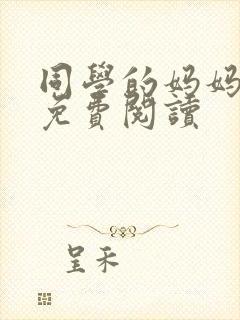 同學的妈妈
免費閱讀
呈禾